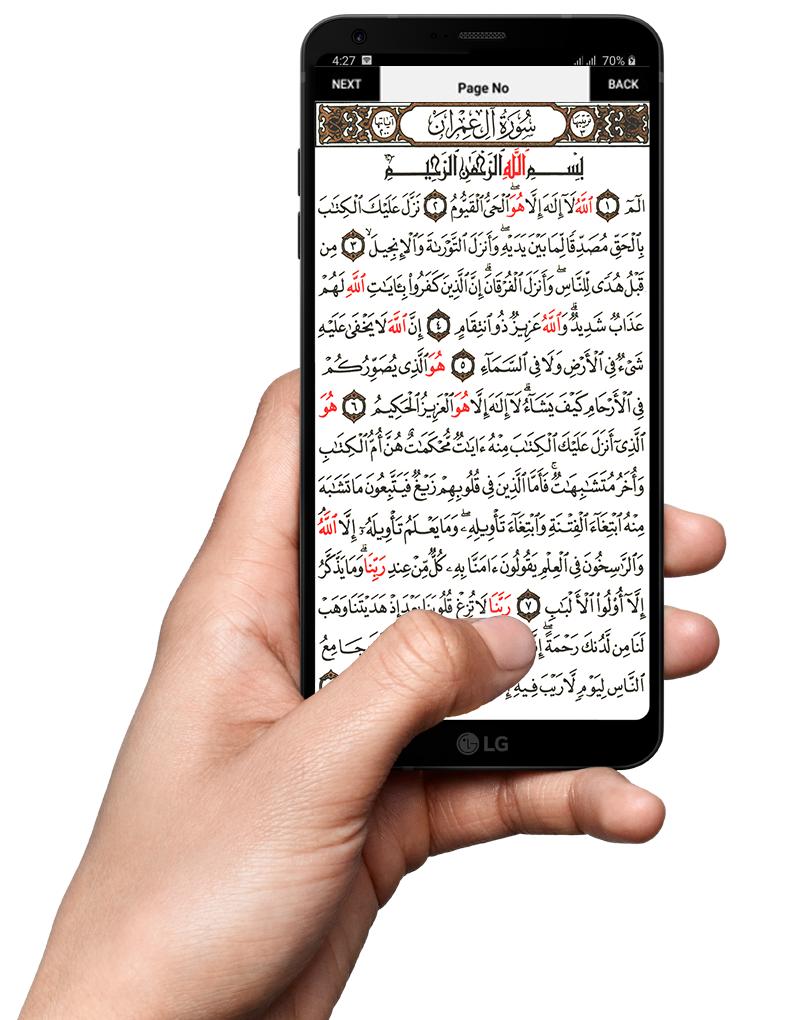 4:27 70%
NEXT Page No BACK
سُورَةُ آلِ عِمْرَانَ
بِسْمِ اللَّهِ الرَّحْمَٰنِ الرَّحِيمِ
الٓمٓ ١ ٱللَّهُ لَآ إِلَٰهَ إِلَّا هُوَ ٱلْحَىُّ ٱلْقَيُّومُ ٢ نَزَّلَ عَلَيْكَ ٱلْكِتَٰبَ
بِٱلْحَقِّ مُصَدِّقًا لِّمَا بَيْنَ يَدَيْهِ وَأَنزَلَ ٱلتَّوْرَىٰةَ وَٱلْإِنجِيلَ ٣ مِن
قَبْلُ هُدًى لِّلنَّاسِ وَأَنزَلَ ٱلْفُرْقَانَ ۗ إِنَّ ٱلَّذِينَ كَفَرُوا۟ بِـَٔايَٰتِ ٱللَّهِ لَهُمْ
عَذَابٌ شَدِيدٌ ۗ وَٱللَّهُ عَزِيزٌ ذُو ٱنتِقَامٍ ٤ إِنَّ ٱللَّهَ لَا يَخْفَىٰ عَلَيْهِ
شَىْءٌ فِى ٱلْأَرْضِ وَلَا فِى ٱلسَّمَآءِ ٥ هُوَ ٱلَّذِى يُصَوِّرُكُمْ
فِى ٱلْأَرْحَامِ كَيْفَ يَشَآءُ ۚ لَآ إِلَٰهَ إِلَّا هُوَ ٱلْعَزِيزُ ٱلْحَكِيمُ ٦ هُوَ
ٱلَّذِىٓ أَنزَلَ عَلَيْكَ ٱلْكِتَٰبَ مِنْهُ ءَايَٰتٌ مُّحْكَمَٰتٌ هُنَّ أُمُّ ٱلْكِتَٰبِ
وَأُخَرُ مُتَشَٰبِهَٰتٌ ۖ فَأَمَّا ٱلَّذِينَ فِى قُلُوبِهِمْ زَيْغٌ فَيَتَّبِعُونَ مَا تَشَٰبَهَ
مِنْهُ ٱبْتِغَآءَ ٱلْفِتْنَةِ وَٱبْتِغَآءَ تَأْوِيلِهِۦ ۗ وَمَا يَعْلَمُ تَأْوِيلَهُۥٓ إِلَّا ٱللَّهُ
وَٱلرَّٰسِخُونَ فِى ٱلْعِلْمِ يَقُولُونَ ءَامَنَّا بِهِۦ كُلٌّ مِّنْ عِندِ رَبِّنَا ۗ وَمَا يَذَّكَّرُ
إِلَّآ أُو۟لُوا۟ ٱلْأَلْبَٰبِ ٧ رَبَّنَا لَا تُزِغْ قُلُوبَنَا بَعْدَ إِذْ هَدَيْتَنَا وَهَبْ
لَنَا مِن لَّدُنكَ رَحْمَةً ۚ جَامِعُ
ٱلنَّاسِ لِيَوْمٍ لَّا رَيْبَ فِيهِ
LG